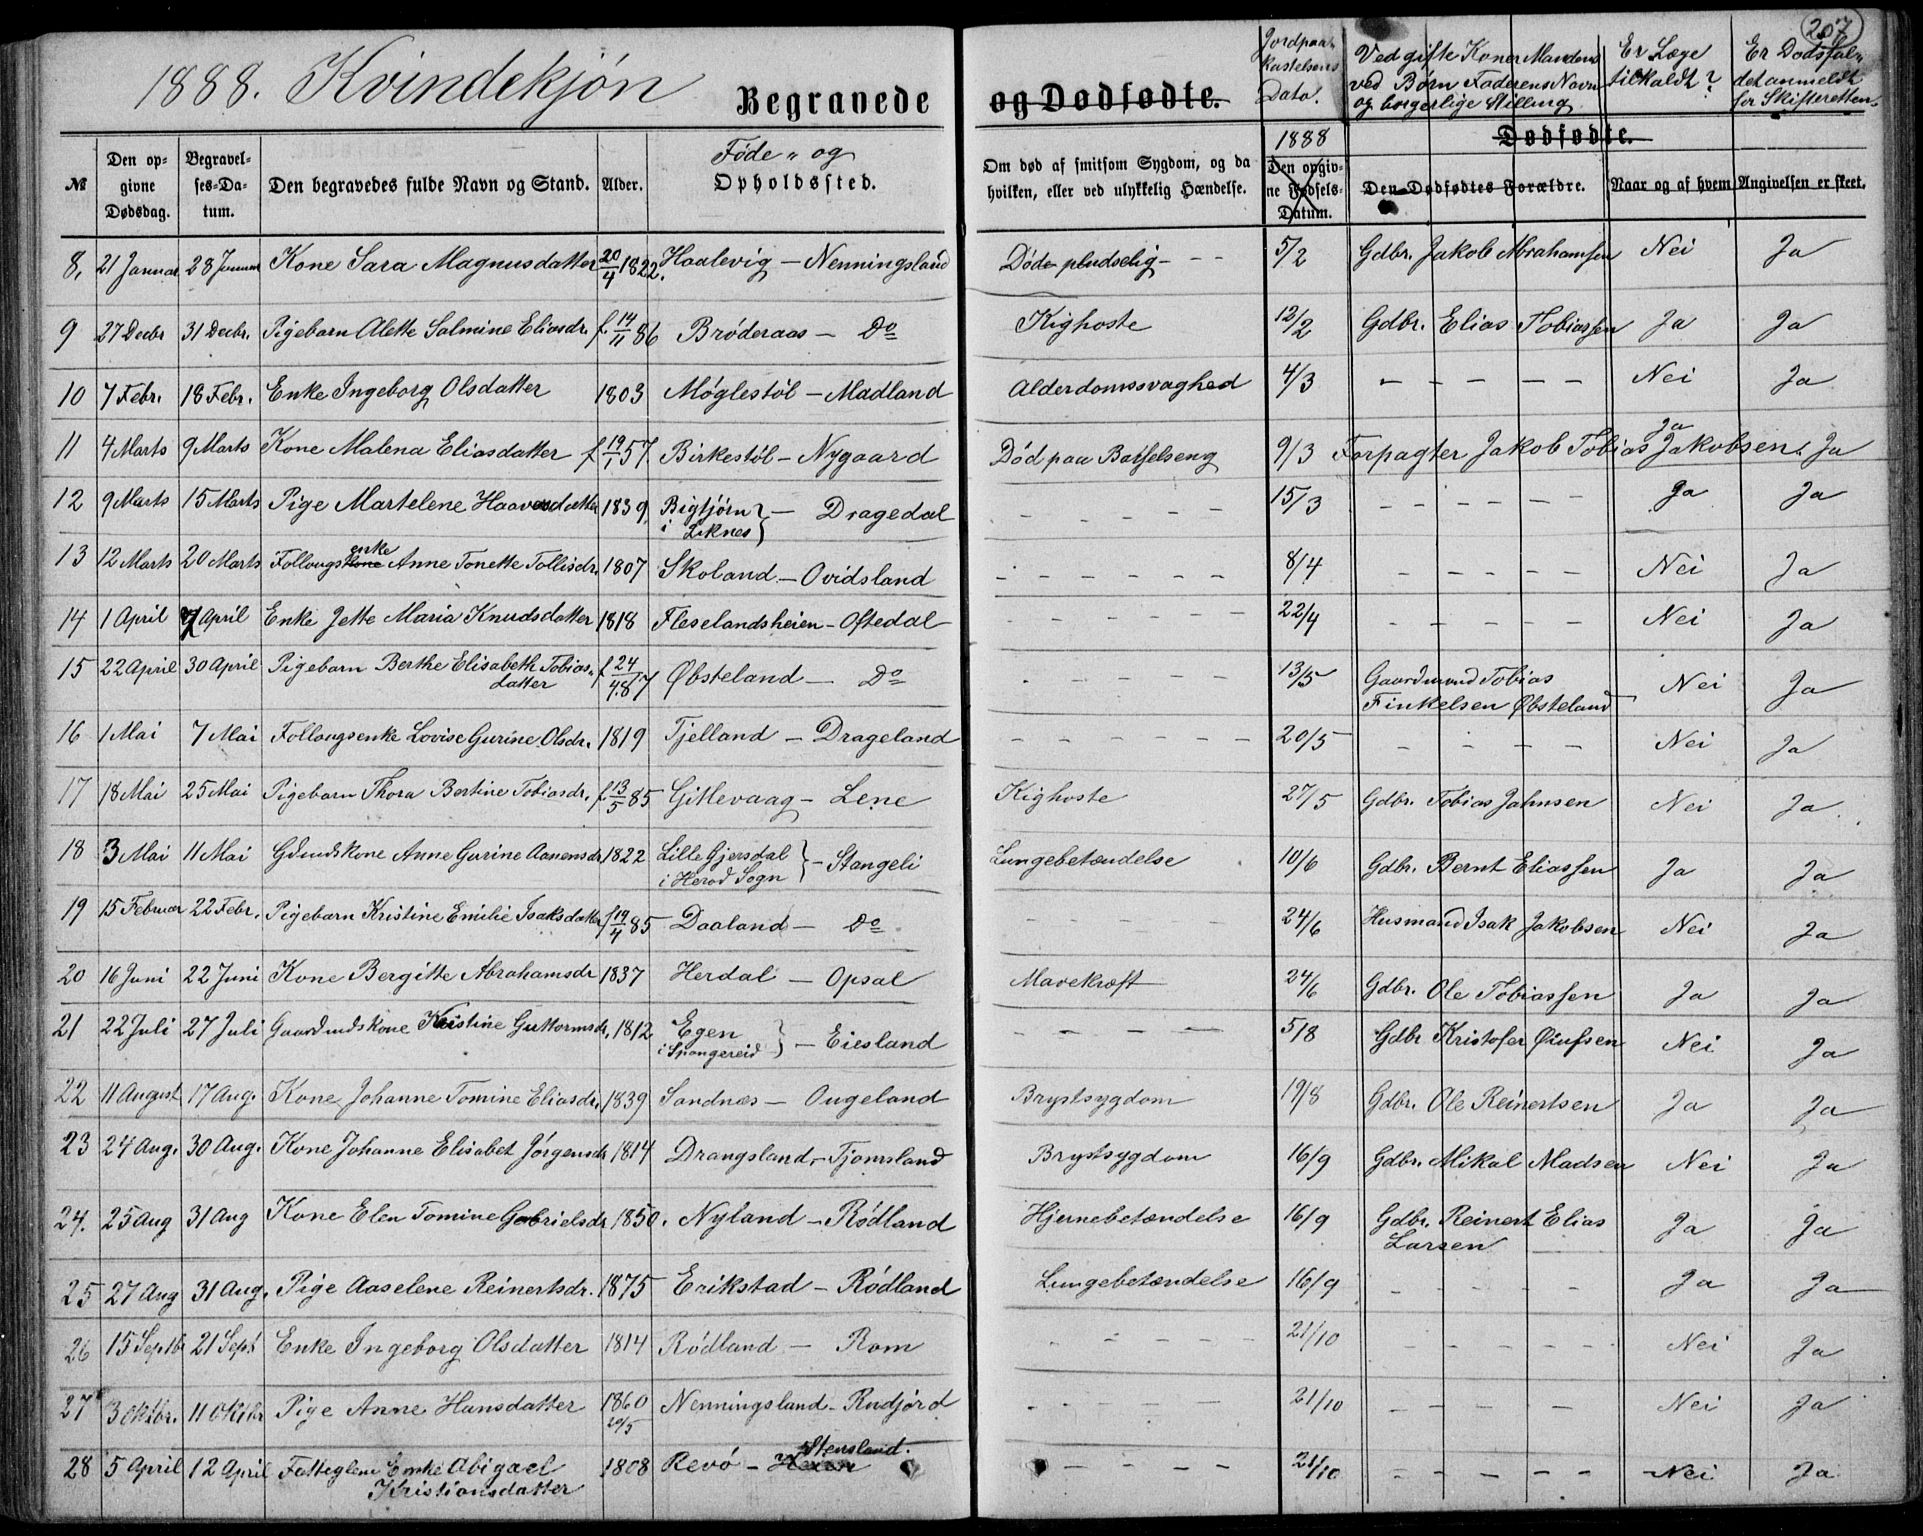 207
1888. Kvindekjøn Begravede og Dødfødte.
Jordpaakastelsens Dato. Ved gifte Koner Mandens ved Børn Faderens Navn og borgerlige Stilling Er Læge tilkaldt? Er Dødsfaldet anmeldt for Skifteretten.
1888 Dødfødte.
№ Den opgivne Dødsdag. Begravelses-Datum. Den begravedes fulde Navn og Stand. Alder. Føde- og Opholdssted. Om død af smitsom Sygdom, og da hvilken, eller ved ulykkelig Hændelse. Den opgivne Fødsels-Datum. Den Dødfødtes Forældre. Naar og af hvem Angivelsen er skeet.
8, 21 Januar 28 Januar Kone Sara Magnusdatter 20/4 1822. Haalevig – Nenningsland Døde pludselig – – 5/2 Gdbr. Jakob Abrahamsen Nei Ja
9 27 Decbr 31 Decbr. Pigebarn Alette Salmine Eliasdr. f. 14/11 86 Brøderaas – Do Kighoste 12/2 Gdbr. Elias Tobiassen Ja Ja
10 7 Febr. 18 Febr. Enke Ingeborg Olsdatter 1803 Møglestøl – Madland Alderdomssvaghed 4/3 – – – – – Nei Ja
11 4 Marts 9 Marts Kone Malena Eliasdatter f 19/1 57. Birkestøl – Nygaard Død paa Barselseng 9/3 Forpagter Jakob Tobias Jakobsen. Ja Ja
12 9 Marts 15 Marts Pige Martelene Haavesdatter 1839, Bigtjørn i Liknes } – Dragedal – – – – – 15/3 – – – – – Ja Ja
13 12 Marts 20 Marts Follougskone enke Anne Tonette Tollisdr. 1807 Skoland – Ovidsland – – – – – – 8/4 – – – – – Nei Ja
14 1 April 7 April Enke Jette Maria Knudsdatter 1818 Fleselandsheien – Oftedal – – – – – 22/4 – – – – – Nei Ja
15 22 April 30 April Pigebarn Berthe Elisabeth Tobiasdatter f 24/4.87 Øbsteland – Do – – – – – 13/5 Gaardmand Tobias Finkelsen Øbsteland Nei Ja
16 1 Mai 7 Mai Follougsenke Lovise Gurine Olsdr. 1819 Tjelland – Drageland – – – – – – 20/5 – – – – Nei Ja
17 18 Mai 25 Mai Pigebarn Thora Bertine Tobiasdr. f. 13/5 85 Gitlevaag – Lene Kighoste 27/5 Gdbr. Tobias Jahnsen Nei Ja
18 3 Mai 11 Mai Gdmdskone Anne Gurine Aanensdr 1822 Lille Gjersdal i Herod Sogn } – Stangeli Lungebetændelse 10/6 Gdbr. Bernt Eliassen Ja Ja
19 15 Februar 22 Febr. Pigebarn Kristine Emilie Isaksdatter f 19/4 85 Daaland – Do – – – – – 24/6 Husmand Isak Jakobsen Nei Ja
20 16 Juni 22 Juni Kone Bergitte Abrahamsdr 1837 Herdal – Opsal Mavekræft 24/6 Gdbr. Ole Tobiassen Ja Ja
21 22 Juli 27 Juli Gaardmdskone Kristine Guttormsdr. 1812 Egen i Spangereid } – Eiesland – – – – – 5/8 Gdbr Kristofer Nei Ja
22 11 August 17 Aug. Kone Johanne Tomine Eliasdr. 1839 Sandnæs – Ougeland Brystsygdom 19/8 Gdbr. Ole Reinertsen Ja Ja
23 24 Aug. 30 Aug. Kone Johanne Elisabet Jørgensdr 1814 Drangsland – Tjomsland Brystsygdom 16/9 Gdbr. Mikal Madsen Nei Ja
24. 25 Aug 31 Aug Kone Elen Tomine Gabrielsdr 1850. Nyland – Rødland Hjernebetændelse 16/9 Gdbr. Reinert Elias Larsen Ja Ja
25 27 Aug 31 Aug. Pige Aaselene Reinertsdr. 1875 Erikstad – Rødland Lungebetændelse 16/9 – – – – – Ja Ja
26 15 Septbr 21 Sept Enke Ingeborg Olsdatter 1814 Rødland – Rom – – – – – 21/10 – – – – – Nei Ja
27 3 Oktbr. 11 Oktbr Pige Anne Hansdatter 1860 20/5 Nenningsland – Rudjord – – – – – 21/10 – – – – – Nei Ja
28 5 April 12 April Fattiglem Enke Abigael Kristiansdatter 1808 Revø – Stensland. – – – – 21/10 – – – – – Nei Ja